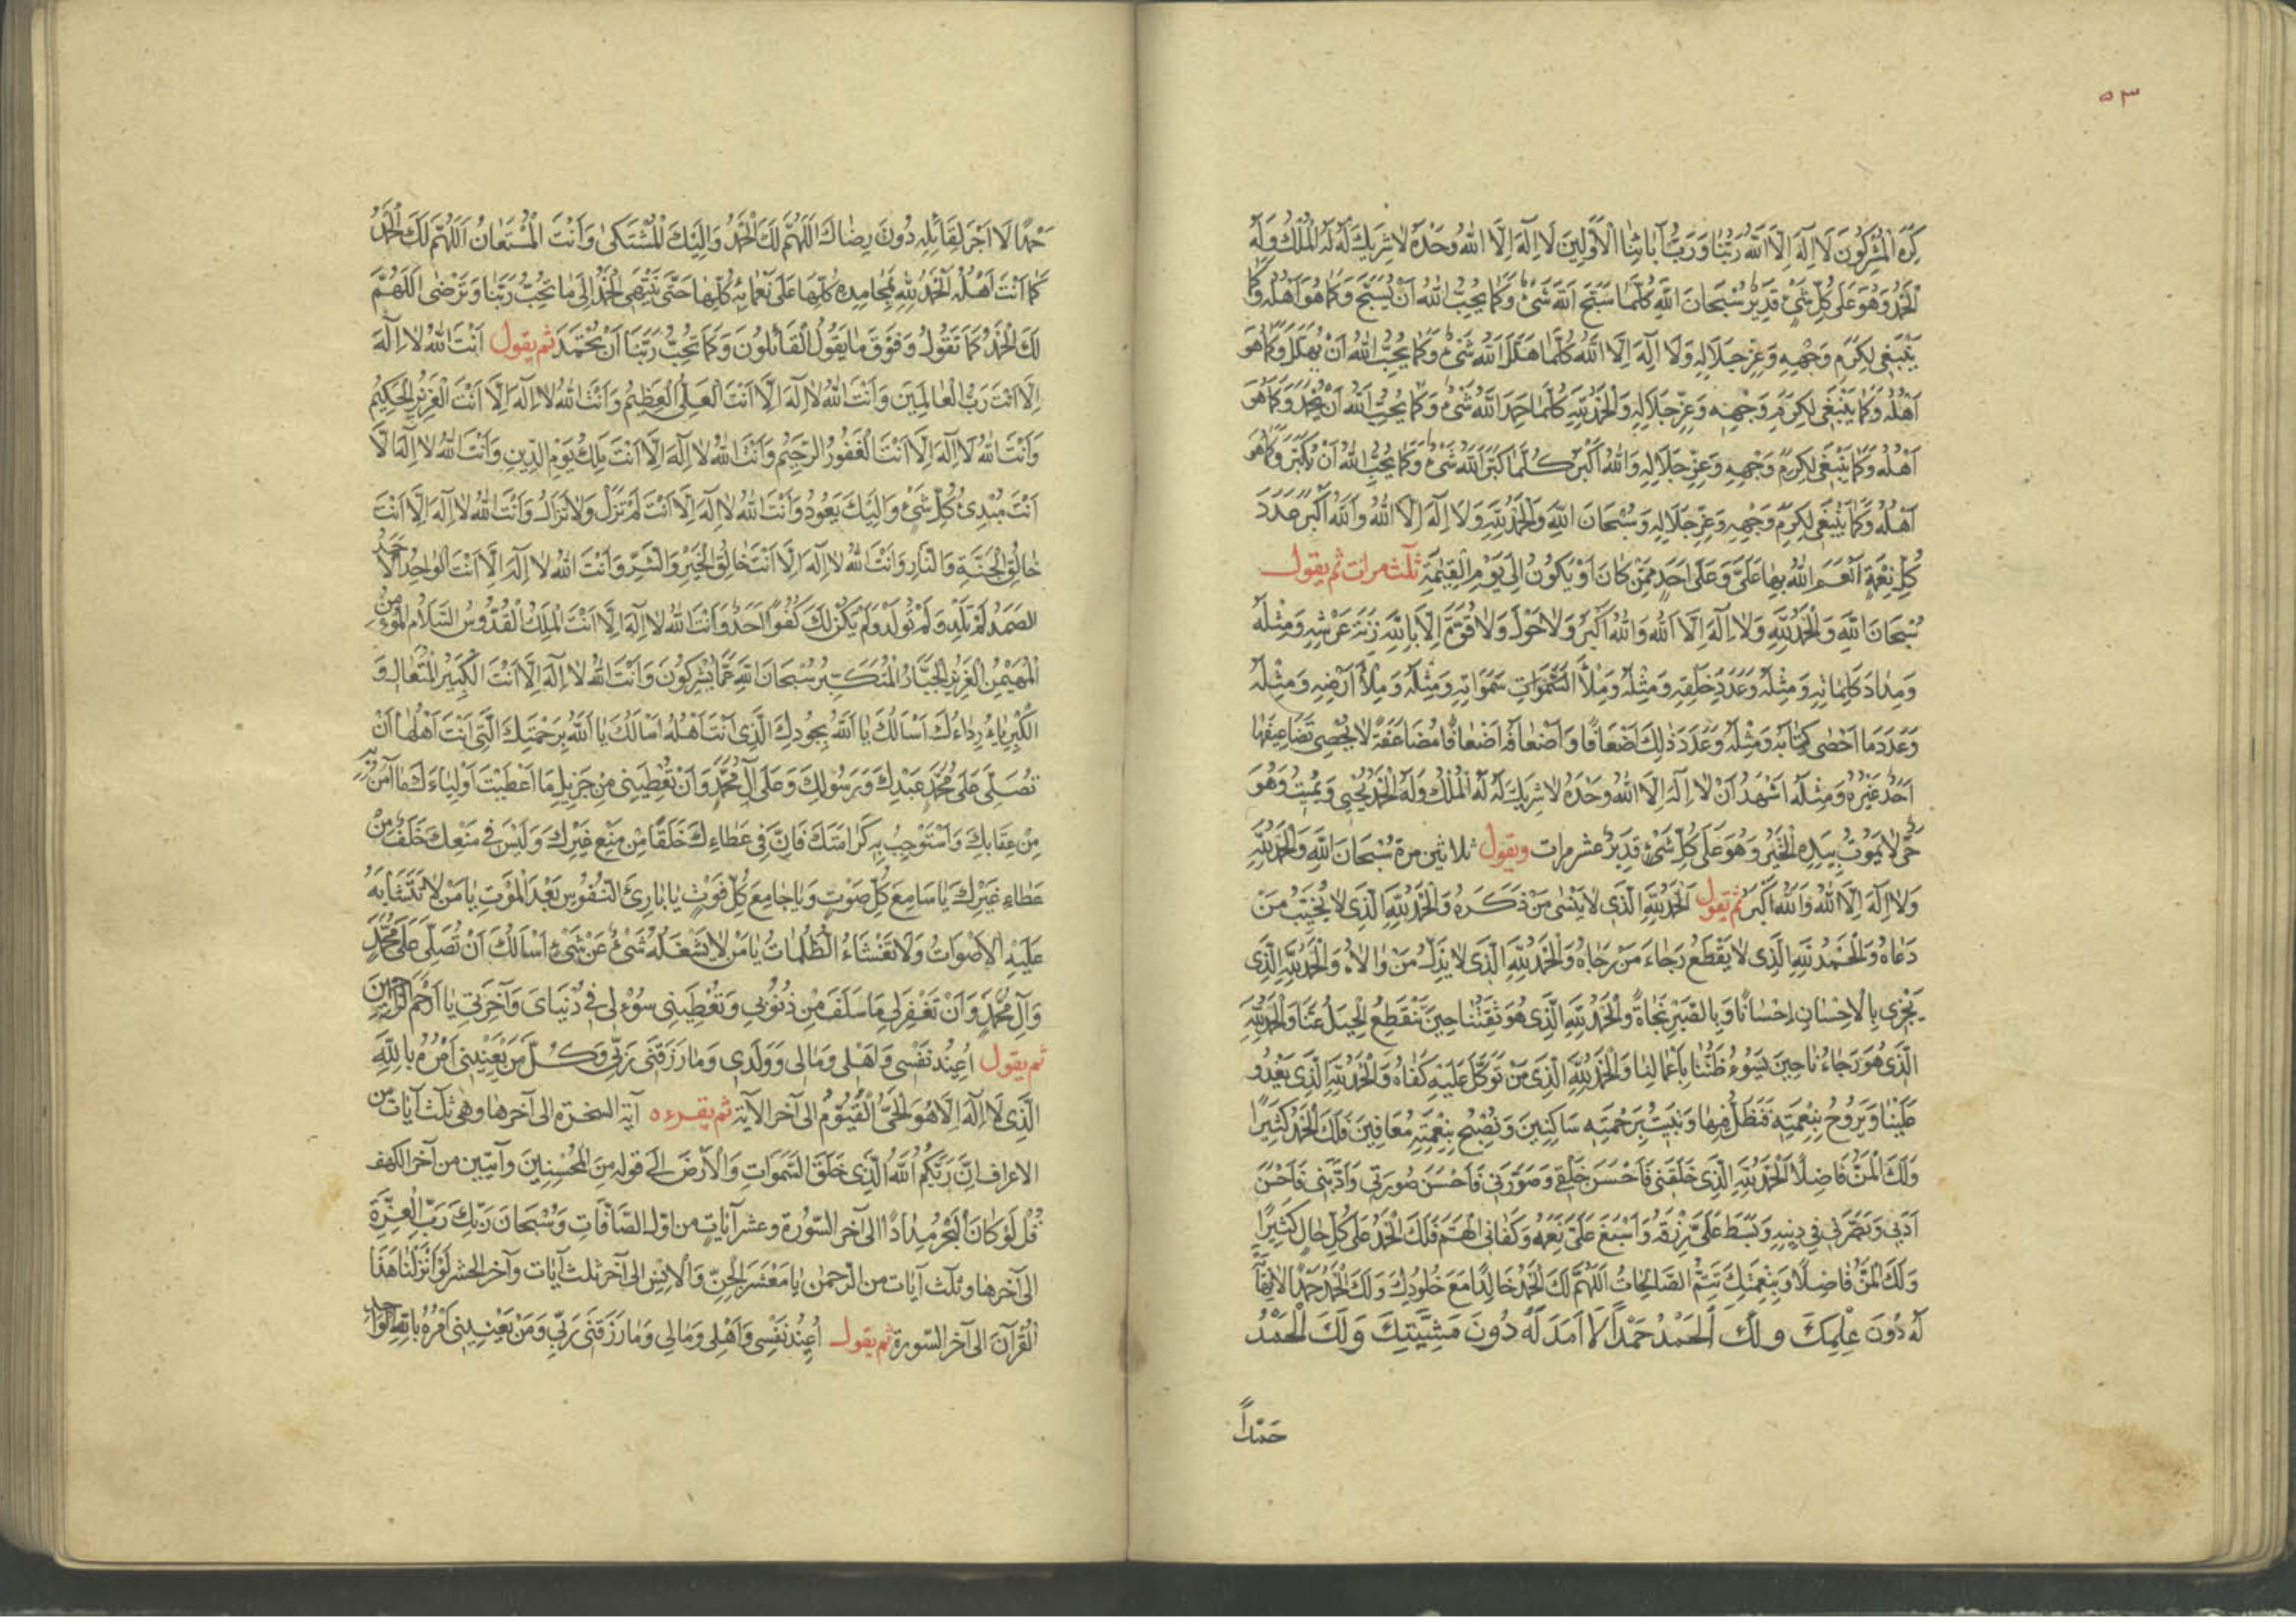 ٥٣
كَرِهَ الْمُشْرِكُونَ لَا اِلٰهَ اِلَّا اللّٰهُ رَبُّنَا وَرَبُّ آبَائِنَا الْاَوَّلِينَ لَا اِلٰهَ اِلَّا اللّٰهُ وَحْدَهُ لَا شَرِيكَ لَهُ لَهُ الْمُلْكُ وَلَهُ
الْحَمْدُ وَهُوَ عَلٰى كُلِّ شَىْءٍ قَدِيرٌ سُبْحَانَ اللّٰهِ كُلَّمَا سَبَّحَ اللّٰهَ شَىْءٌ وَكَمَا يُحِبُّ اللّٰهُ اَنْ يُسَبَّحَ وَكَمَا هُوَ اَهْلُهُ وَكَمَا
يَنْبَغِى لِكَرَمِ وَجْهِهِ وَعِزِّ جَلَالِهِ وَلَا اِلٰهَ اِلَّا اللّٰهُ كُلَّمَا هَلَّلَ اللّٰهَ شَىْءٌ وَكَمَا يُحِبُّ اللّٰهُ اَنْ يُهَلَّلَ وَكَمَا هُوَ
اَهْلُهُ وَكَمَا يَنْبَغِى لِكَرَمِ وَجْهِهِ وَعِزِّ جَلَالِهِ وَالْحَمْدُ لِلّٰهِ كُلَّمَا حَمِدَ اللّٰهَ شَىْءٌ وَكَمَا يُحِبُّ اللّٰهُ اَنْ يُحْمَدَ وَكَمَا هُوَ
اَهْلُهُ وَكَمَا يَنْبَغِى لِكَرَمِ وَجْهِهِ وَعِزِّ جَلَالِهِ وَاللّٰهُ اَكْبَرُ كُلَّمَا كَبَّرَ اللّٰهَ شَىْءٌ وَكَمَا يُحِبُّ اللّٰهُ اَنْ يُكَبَّرَ وَكَمَا هُوَ
اَهْلُهُ وَكَمَا يَنْبَغِى لِكَرَمِ وَجْهِهِ وَعِزِّ جَلَالِهِ وَسُبْحَانَ اللّٰهِ وَالْحَمْدُ لِلّٰهِ وَلَا اِلٰهَ اِلَّا اللّٰهُ وَاللّٰهُ اَكْبَرُ عَدَدَ
كُلِّ نِعْمَةٍ اَنْعَمَ اللّٰهُ بِهَا عَلَىَّ وَعَلٰى اَحَدٍ مِمَّنْ كَانَ اَوْ يَكُونُ اِلٰى يَوْمِ الْقِيٰمَةِ ثلث مرات ثم يقول
سُبْحَانَ اللّٰهِ وَالْحَمْدُ لِلّٰهِ وَلَا اِلٰهَ اِلَّا اللّٰهُ وَاللّٰهُ اَكْبَرُ وَلَا حَوْلَ وَلَا قُوَّةَ اِلَّا بِاللّٰهِ زِنَةَ عَرْشِهِ وَمِثْلَهُ
وَمِدَادَ كَلِمَاتِهِ وَمِثْلَهُ وَعَدَدَ خَلْقِهِ وَمِثْلَهُ وَمِلْأَ السَّمٰوَاتِ سَمٰوَاتِهِ وَمِثْلَهُ وَمِلْأَ اَرْضِهِ وَمِثْلَهُ
وَعَدَدَ مَا اَحْصٰى كِتَابُهُ وَمِثْلَهُ وَعَدَدَ ذٰلِكَ اَضْعَافًا وَاَضْعَافَهُ اَضْعَافًا مُضَاعَفَةً لَا يُحْصِى تَضَاعِيفَهَا
اَحَدٌ غَيْرُهُ وَمِثْلَهُ اَشْهَدُ اَنْ لَا اِلٰهَ اِلَّا اللّٰهُ وَحْدَهُ لَا شَرِيكَ لَهُ لَهُ الْمُلْكُ وَلَهُ الْحَمْدُ يُحْيِى وَيُمِيتُ وَهُوَ
حَىٌّ لَا يَمُوتُ بِيَدِهِ الْخَيْرُ وَهُوَ عَلٰى كُلِّ شَىْءٍ قَدِيرٌ عشر مرات ويقول ثلاثين مرة سُبْحَانَ اللّٰهِ وَالْحَمْدُ لِلّٰهِ
وَلَا اِلٰهَ اِلَّا اللّٰهُ وَاللّٰهُ اَكْبَرُ ثم يقول اَلْحَمْدُ لِلّٰهِ الَّذِى لَا يَنْسٰى مَنْ ذَكَرَهُ وَالْحَمْدُ لِلّٰهِ الَّذِى لَا يُخَيِّبُ مَنْ
دَعَاهُ وَالْحَمْدُ لِلّٰهِ الَّذِى لَا يَقْطَعُ رَجَاءَ مَنْ رَجَاهُ وَالْحَمْدُ لِلّٰهِ الَّذِى لَا يَذِلُّ مَنْ وَالَاهُ وَالْحَمْدُ لِلّٰهِ الَّذِى
يَجْزِى بِالْاِحْسَانِ اِحْسَانًا وَبِالصَّبْرِ نَجَاةً وَالْحَمْدُ لِلّٰهِ الَّذِى هُوَ ثِقَتُنَا حِينَ تَنْقَطِعُ الْحِيَلُ عَنَّا وَالْحَمْدُ لِلّٰهِ
الَّذِى هُوَ رَجَاءُنَا حِينَ يَسُوءُ ظَنُّنَا بِاَعْمَالِنَا وَالْحَمْدُ لِلّٰهِ الَّذِى مَنْ تَوَكَّلَ عَلَيْهِ كَفَاهُ وَالْحَمْدُ لِلّٰهِ الَّذِى يَغْدُو
عَلَيْنَا وَيَرُوحُ بِنِعْمَتِهِ فَنَظَلُّ فِيهَا وَنَبِيتُ بِرَحْمَتِهِ سَاكِنِينَ وَنُصْبِحُ بِنِعْمَتِهِ مُعَافِينَ فَلَكَ الْحَمْدُ كَثِيرًا
وَلَكَ الْمَنُّ فَاضِلًا اَلْحَمْدُ لِلّٰهِ الَّذِى خَلَقَنِى فَاَحْسَنَ خَلْقِى وَصَوَّرَنِى فَاَحْسَنَ صُورَتِى وَاَدَّبَنِى فَاَحْسَنَ
اَدَبِى وَبَصَّرَنِى فِى دِينِهِ وَبَسَطَ عَلَىَّ رِزْقَهُ وَاَسْبَغَ عَلَىَّ نِعَمَهُ وَكَفَانِى الْهَمَّ فَلَكَ الْحَمْدُ عَلٰى كُلِّ حَالٍ كَثِيرًا
وَلَكَ الْمَنُّ فَاضِلًا وَبِنِعْمَتِكَ تَتِمُّ الصَّالِحَاتُ اَللّٰهُمَّ لَكَ الْحَمْدُ خَالِدًا مَعَ خُلُودِكَ وَلَكَ الْحَمْدُ حَمْدًا لَا
لَهُ دُونَ عِلْمِكَ وَلَكَ الْحَمْدُ حَمْدًا لَا اَمَدَ لَهُ دُونَ مَشِيَّتِكَ وَلَكَ الْحَمْدُ
حَمْدًا
حَمْدًا لَا اَجْرَ لِقَائِلِهِ دُونَ رِضَاكَ اَللّٰهُمَّ لَكَ الْحَمْدُ وَاِلَيْكَ الْمُشْتَكٰى وَاَنْتَ الْمُسْتَعَانُ اَللّٰهُمَّ لَكَ الْحَمْدُ
كَمَا اَنْتَ اَهْلُهُ الْحَمْدُ لِلّٰهِ بِمَحَامِدِهِ كُلِّهَا عَلٰى نَعْمَائِهِ كُلِّهَا حَتّٰى يَنْتَهِىَ الْحَمْدُ اِلٰى مَا تُحِبُّ رَبَّنَا وَتَرْضٰى اَللّٰهُمَّ
لَكَ الْحَمْدُ كَمَا تَقُولُ وَفَوْقَ مَا يَقُولُ الْقَائِلُونَ وَكَمَا تُحِبُّ رَبَّنَا اَنْ تُحْمَدَ ثم يقول اَنْتَ اللّٰهُ لَا اِلٰهَ
اِلَّا اَنْتَ رَبُّ الْعَالَمِينَ وَاَنْتَ اللّٰهُ لَا اِلٰهَ اِلَّا اَنْتَ الْعَلِىُّ الْعَظِيمُ وَاَنْتَ اللّٰهُ لَا اِلٰهَ اِلَّا اَنْتَ الْعَزِيزُ الْحَكِيمُ
وَاَنْتَ اللّٰهُ لَا اِلٰهَ اِلَّا اَنْتَ الْغَفُورُ الرَّحِيمُ وَاَنْتَ اللّٰهُ لَا اِلٰهَ اِلَّا اَنْتَ مَلِكُ يَوْمِ الدِّينِ وَاَنْتَ اللّٰهُ لَا اِلٰهَ اِلَّا
اَنْتَ مُبْدِئُ كُلِّ شَىْءٍ وَاِلَيْكَ يَعُودُ وَاَنْتَ اللّٰهُ لَا اِلٰهَ اِلَّا اَنْتَ لَمْ تَزَلْ وَلَا تَزَالُ وَاَنْتَ اللّٰهُ لَا اِلٰهَ اِلَّا اَنْتَ
خَالِقُ الْجَنَّةِ وَالنَّارِ وَاَنْتَ اللّٰهُ لَا اِلٰهَ اِلَّا اَنْتَ خَالِقُ الْخَيْرِ وَالشَّرِّ وَاَنْتَ اللّٰهُ لَا اِلٰهَ اِلَّا اَنْتَ الْوَاحِدُ الْاَحَدُ
الصَّمَدُ لَمْ يَلِدْ وَلَمْ يُولَدْ وَلَمْ يَكُنْ لَكَ كُفُوًا اَحَدٌ وَاَنْتَ اللّٰهُ لَا اِلٰهَ اِلَّا اَنْتَ الْمَلِكُ الْقُدُّوسُ السَّلَامُ الْمُؤْمِنُ
الْمُهَيْمِنُ الْعَزِيزُ الْجَبَّارُ الْمُتَكَبِّرُ سُبْحَانَ اللّٰهِ عَمَّا يُشْرِكُونَ وَاَنْتَ اللّٰهُ لَا اِلٰهَ اِلَّا اَنْتَ الْكَبِيرُ الْمُتَعَالِ وَ
الْكِبْرِيَاءُ رِدَاءُكَ اَسْأَلُكَ يَا اَللّٰهُ بِجُودِكَ الَّذِى اَنْتَ اَهْلُهُ اَسْأَلُكَ يَا اَللّٰهُ بِرَحْمَتِكَ الَّتِى اَنْتَ اَهْلُهَا اَنْ
تُصَلِّىَ عَلٰى مُحَمَّدٍ عَبْدِكَ وَرَسُولِكَ وَعَلٰى آلِ مُحَمَّدٍ وَاَنْ تُعْطِيَنِى مِنْ جَزِيلِ مَا اَعْطَيْتَ اَوْلِيَاءَكَ مَا آمَنُ بِهِ
مِنْ عِقَابِكَ وَاَسْتَوْجِبُ بِهِ كَرَامَتَكَ فَاِنَّ فِى عَطَاءِكَ خَلَفًا مِنْ مَنْعِ غَيْرِكَ وَلَيْسَ فِى مَنْعِكَ خَلَفٌ مِنْ
عَطَاءِ غَيْرِكَ يَا سَامِعَ كُلِّ صَوْتٍ وَيَا جَامِعَ كُلِّ فَوْتٍ يَا بَارِئَ النُّفُوسِ بَعْدَ الْمَوْتِ يَا مَنْ لَا تَتَشَابَهُ
عَلَيْهِ الْاَصْوَاتُ وَلَا تَغْشَاءُ الظُّلُمَاتُ يَا مَنْ لَا يَشْغَلُهُ شَىْءٌ عَنْ شَىْءٍ اَسْأَلُكَ اَنْ تُصَلِّىَ عَلٰى مُحَمَّدٍ
وَآلِ مُحَمَّدٍ وَاَنْ تَغْفِرَ لِى مَا سَلَفَ مِنْ ذُنُوبِى وَتُعْطِيَنِى سُؤْلِى فِى دُنْيَاىَ وَآخِرَتِى يَا اَرْحَمَ الرَّاحِمِينَ
ثم يقول اُعِيذُ نَفْسِى وَاَهْلِى وَمَالِى وَوَلَدِى وَمَا رَزَقَنِى رَبِّى وَكُلَّ مَنْ يَعْنِينِى اَمْرُهُ بِاللّٰهِ
الَّذِى لَا اِلٰهَ اِلَّا هُوَ الْحَىُّ الْقَيُّومُ الى آخر الآية ثم يقرءه آية السخرة الى آخرها وهى ثلث آيات من
الاعراف اِنَّ رَبَّكُمُ اللّٰهُ الَّذِى خَلَقَ السَّمٰوَاتِ وَالْاَرْضَ الى قوله مِنَ الْمُحْسِنِينَ وآيتين من آخر الكهف
قُلْ لَوْ كَانَ الْبَحْرُ مِدَادًا الى آخر السّورة وعشر آيات من اول الصَّافَّاتِ وَسُبْحَانَ رَبِّكَ رَبِّ الْعِزَّةِ
الى آخرها وثلث آيات من الرّحمٰن يَا مَعْشَرَ الْجِنِّ وَالْاِنْسِ الى آخر ثلث آيات وآخر الحشر لَوْ اَنْزَلْنَا هٰذَا
الْقُرْآنَ الى آخر السّورة ثم يقول اُعِيذُ نَفْسِى وَاَهْلِى وَمَالِى وَمَا رَزَقَنِى رَبِّى وَمَنْ يَعْنِينِى اَمْرُهُ بِاللّٰهِ الْوَاحِدِ